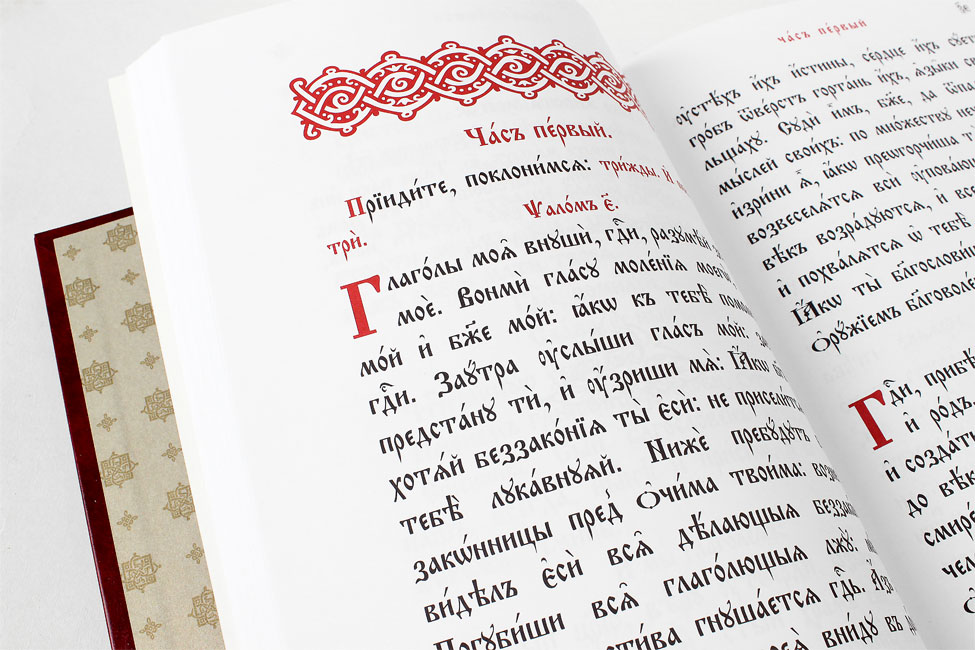 Ча́съ пе́рвый.
Прїиди́те, поклони́мсѧ: три́жды. И҆
Ѱало́мъ є҃.
три̑.
Глаго́лы моѧ̑ внꙋшѝ, гдⷭ҇и, разꙋмѣ́й
моѐ. Вонмѝ гла́сꙋ моле́нїѧ моегѡ̀
мо́й и҆ бж҃е мо́й: ꙗ҆́кѡ къ тебѣ̀
гдⷭ҇и. Заꙋ́тра ᲂу҆слы́ши гла́съ мо́й:
предста́нꙋ тѝ, и҆ ᲂу҆́зриши мѧ̀: Ꙗ҆́кѡ
хотѧ́й беззако́нїѧ ты̀ є҆сѝ: не присели́тсѧ
тебѣ̀ лꙋка́внꙋѧй. Нижѐ пребꙋ́дꙋтъ
закѡ́нницы пред̾ ѻ҆чи́ма твои́ма:
ви́дѣлъ є҆сѝ всѧ̑ дѣ́лающыѧ
Погꙋби́ши всѧ̑ глаго́лющыѧ лжꙋ̀:
гнꙋша́етсѧ гдⷭ҇ь. А҆́зъ
вни́дꙋ въ
ча́съ пе́рвый
ᲂу҆стѣ́хъ и҆́хъ и҆́стины, се́рдце и҆́хъ сꙋ́етно
гро́бъ ѿве́рстъ горта́нь и҆́хъ, ѧ҆зы̑ки
льща́хꙋ. Сꙋдѝ и҆̀мъ, бж҃е, да
мы́слей свои́хъ: по мно́жествꙋ
и҆зри́ни ѧ҆̀, ꙗ҆́кѡ преѡгорчи́ша тѧ̀
возвеселѧ́тсѧ всѝ ᲂу҆пова́ющїи
вѣ́къ возра́дꙋютсѧ, и҆
и҆ похва́лѧтсѧ ѡ҆ тебѣ̀
Ꙗ҆́кѡ ты̀ блгⷭ҇ови́ши
Ѻ҆рꙋ́жїемъ бл҃говоле́нїѧ
Гдⷭ҇и, прибѣ́жище
и҆ ро́дъ.
и҆ созда́тисѧ
до вѣ́ка
смире́нїе